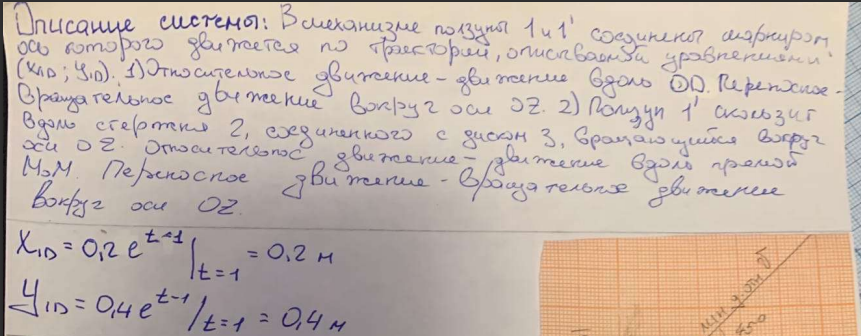 Описание системы: В механизме ползуны 1 и 1' соединены шарниром,
ось которого движется по траектории, описываемой уравнениями
(X1D; Y1D). 1) Относительное движение - движение вдоль OD. Переносное -
вращательное движение вокруг оси OZ. 2) Ползун 1' скользит
вдоль стержня 2, соединенного с диском 3, вращающийся вокруг
оси OZ. Относительное движение - движение вдоль прямой
M₀M. Переносное движение - вращательное движение
вокруг оси OZ.
X1D = 0,2 e^{t-1} /_{t=1} = 0,2 м
Y1D = 0,4 e^{t-1} /_{t=1} = 0,4 м